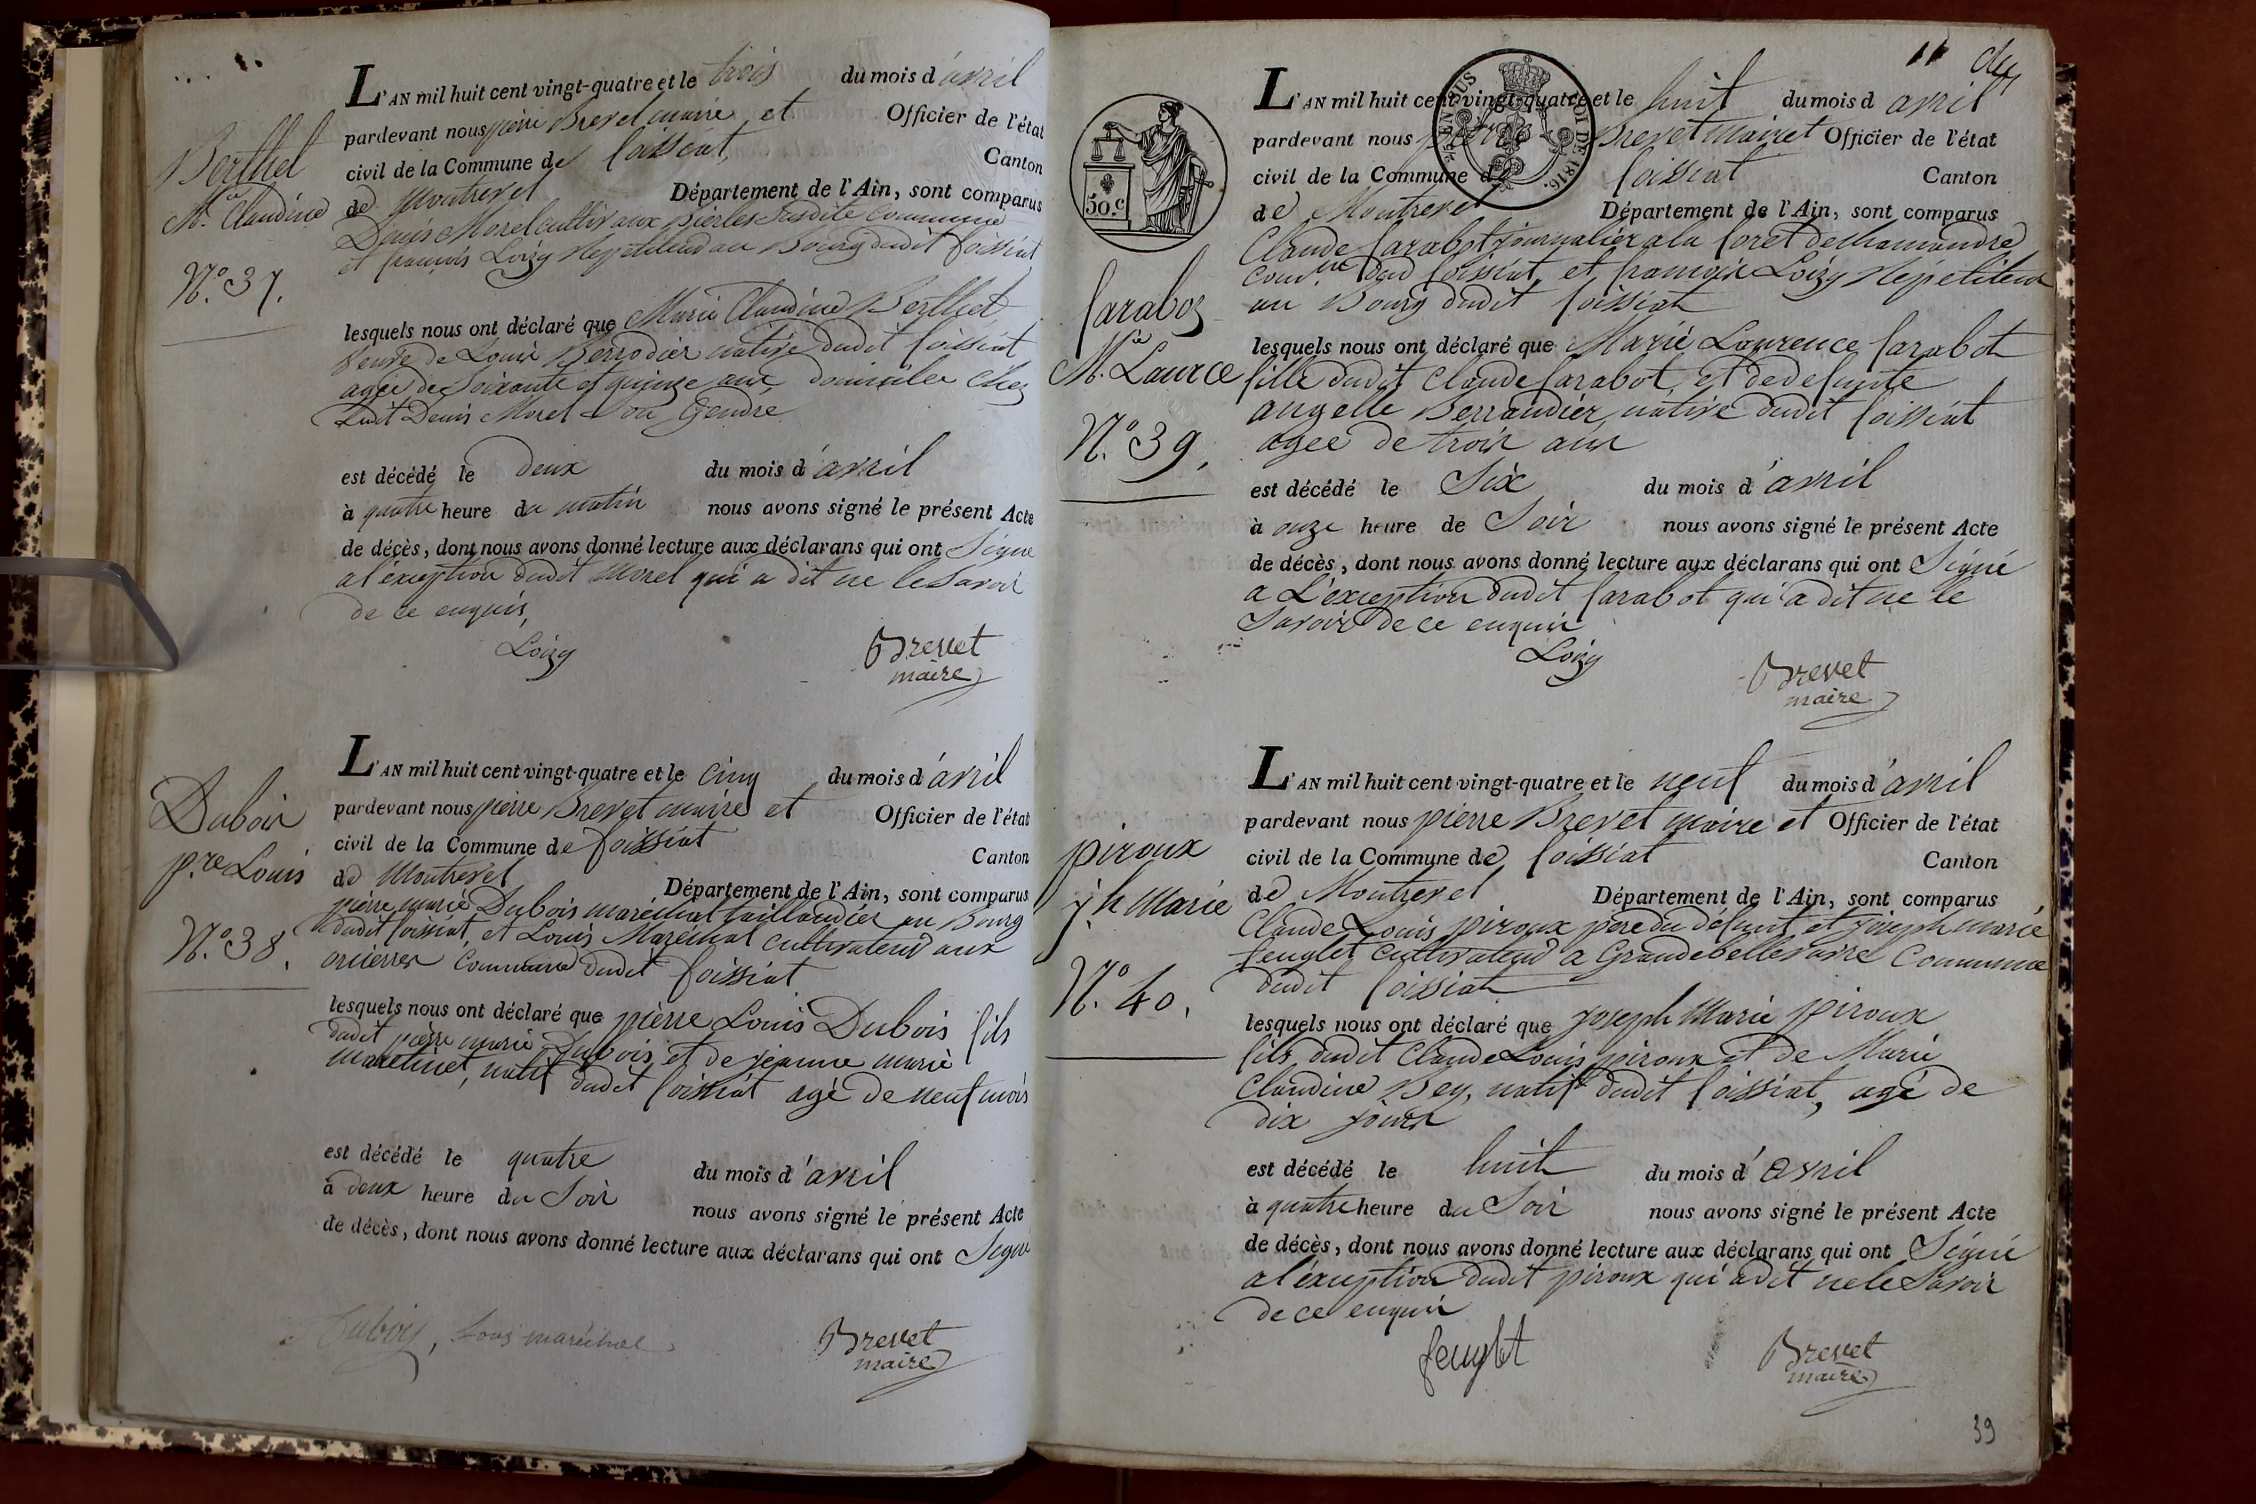 Berthet
Mᵃ. Claudine
N.° 37.
L'AN mil huit cent vingt-quatre et le trois du mois d'avril
pardevant nous pierre Brevet maire et Officier de l'état
civil de la Commune de foissiat Canton
de Montrevel Département de l'Ain, sont comparus
Denis Morel cultivr aux susdite Commune
et françois Loizy Répetiteur au Bourg dudit foissiat
lesquels nous ont déclaré que Marie Claudine Berthet
veuve de Louis Berrodier native dudit foissiat
agée de Soixante et quinze ans domiciliée chez
Ledit Denis Morel Son Gendre
est décédé le deux du mois d'avril
à quatre heure du matin nous avons signé le présent Acte
de décès, dont nous avons donné lecture aux déclarans qui ont Signé
a l'éxception dudit Morel qui a dit ne le Savoir
de ce enquis,
Loizy
Brevet
maire
Dubois
p.re Louis
N.° 38.
L'AN mil huit cent vingt-quatre et le cinq du mois d'avril
pardevant nous pierre Brevet maire et Officier de l'état
civil de la Commune de foissiat Canton
de Montrevel Département de l'Ain, sont comparus
pierre marie Dubois maréchal taillandier au Bourg
dudit foissiat, et Louis Maréchal cultivateur aux
Commune dudit foissiat
lesquels nous ont déclaré que pierre Louis Dubois fils
dudit pierre marie Dubois et de jeanne marie
martinet, natif dudit foissiat agé de neuf mois
est décédé le quatre du mois d'avril
à deux heure du Soir nous avons signé le présent Acte
de décès, dont nous avons donné lecture aux déclarans qui ont Signé
Dubois, maréchal
Brevet
maire
EN SUS
LOI DE 1816.
50.c
faraboz
Mᵃ. Laurce
N.° 39.
L'AN mil huit cent vingt-quatre et le huit du mois d avril
pardevant nous pierre Brevet Maire et Officier de l'état
civil de la Commune de foissiat Canton
de Montrevel Département de l'Ain, sont comparus
Claude farabot journalier a la foret dechamandre
Comᵘⁿᵉ dud foissiat, et françois Loizy Répetiteur
au Bourg dudit foissiat
lesquels nous ont déclaré que Marie Laurence farabot
fille dudit Claude farabot, et de defunte
angelle Berraudier, native dudit foissiat
agee de trois ans
est décédé le Six du mois d'avril
à onze heure de Soir nous avons signé le présent Acte
de décès, dont nous avons donné lecture aux déclarans qui ont Signé
a L'éxception dudit farabot qui a dit ne le
Savoir de ce enquis
Loizy
Brevet
maire
piroux
j.h Marie
N.° 40.
L'AN mil huit cent vingt-quatre et le neuf du mois d'avril
pardevant nous pierre Brevet maire et Officier de l'état
civil de la Commune de foissiat Canton
de Montrevel Département de l'Ain, sont comparus
Claude Louis piroux pere du défunt, et joseph marie
feuglet cultivateur a Grandebellevavre Commune
dudit foissiat
lesquels nous ont déclaré que joseph Marie piroux
fils dudit Claude Louis piroux et de Marie
Claudine Bey, natif dudit foissiat, agé de
dix jours
est décédé le huit du mois d'avril
à quatre heure du Soir nous avons signé le présent Acte
de décès, dont nous avons donné lecture aux déclarans qui ont Signé
a l'éxception dudit piroux qui a dit ne le Savoir
de ce enquis
feuglet
Brevet
maire
39